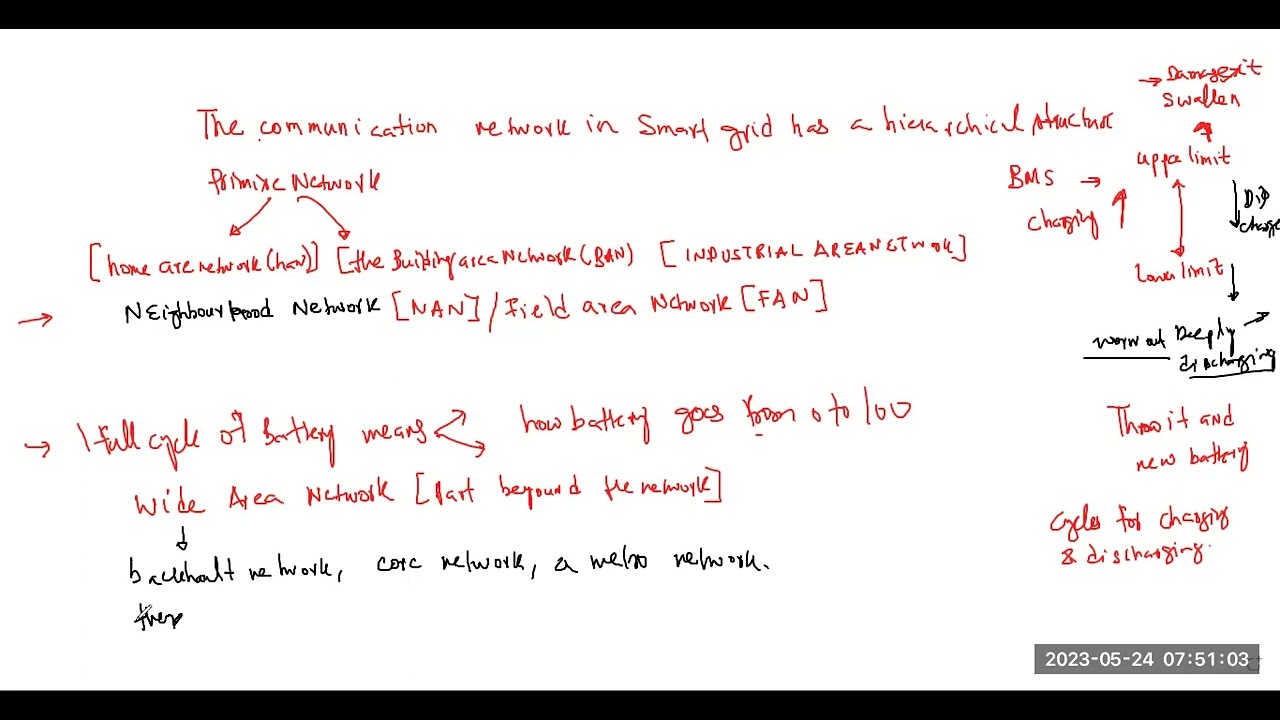 The communication network in Smart grid has a hierarchical structure
Primixe Network
[home are network (han)] [the Building area Network (BAN) [INDUSTRIAL AREA NETWORK]
NEighbourhood Network [NAN] / Field area Network [FAN]
1 full cycle of Battery means how battery goes from 0 to 100
Wide Area Network [Part beyound the network]
backhault network, core network, a metro network.
ther
→ Damages it
swallen
uppe limit
BMS →
charging
Dis
charge
Lower limit
worn out Deeply
discharging
Throw it and
new battery
cycles for charging
& discharging.
2023-05-24 07:51:03